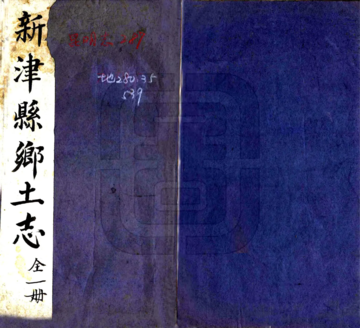 新津縣鄉土志 全一册
地280.35
539